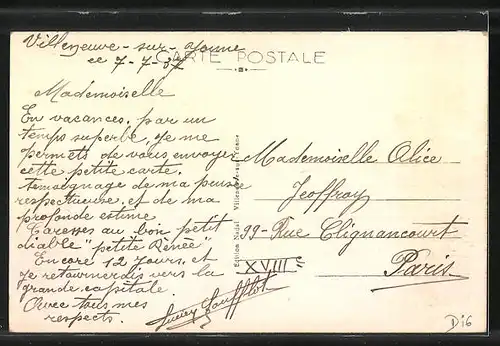 Villeneuve-sur-Yonne
ce 7-7-37
CARTE POSTALE
Mademoiselle
En vacances, par un
temps superbe, je me
permets de vous envoyer
cette petite carte.
temoignage de ma pensée
respectueuse, et de ma
profonde estime.
Caresses au bon petit
diable "petite Rénée"
Encore 12 jours, et
je retournerais vers la
grande capitale
Avec tous mes
respects.
Edition Nodal Villeneuve-sur-Yonne
Mademoiselle Alice
Jeoffroy
99-Rue Clignancourt
XVIIIe
Paris
D16